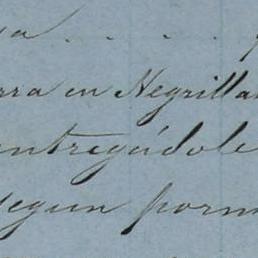 rra en Negrilla
entregádole
segun porm